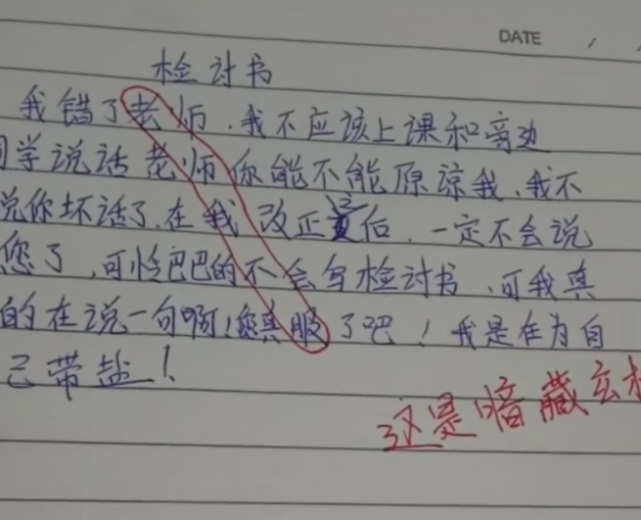 DATE / /
检讨书
我错了老师.我不应该上课和旁边
同学说话老师你能不能原谅我.我不
说你坏话了.在我改正之后.一定不会说
您了,可怜巴巴的不会写检讨书.可我真
的在说一句啊!您真服了吧!我是在为自
己带盐!
这是暗藏玄机